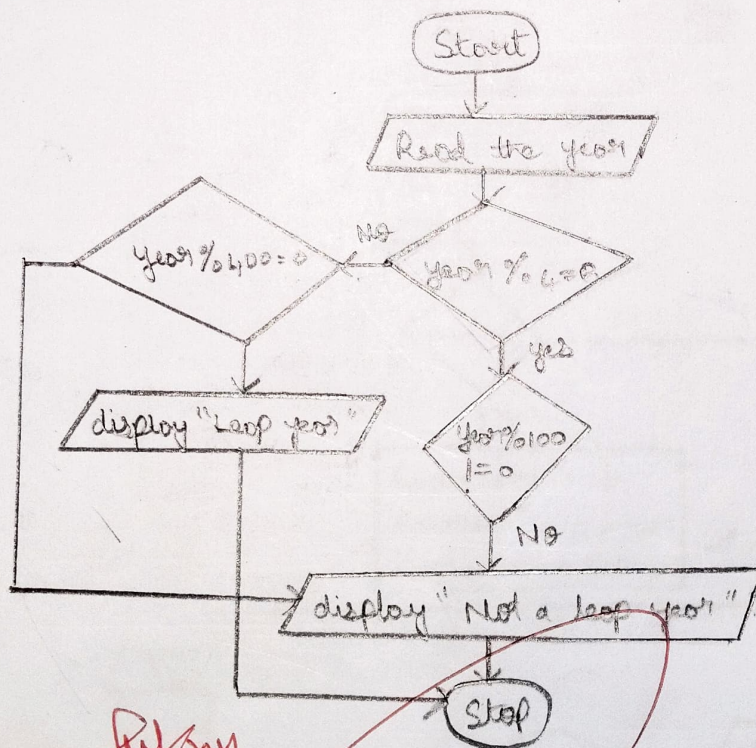 Start
Read the year
No
year % 400 = 0
year % 4 = 0
yes
display "Leap year"
year % 100
!= 0
No
display "Not a leap year"
Stop